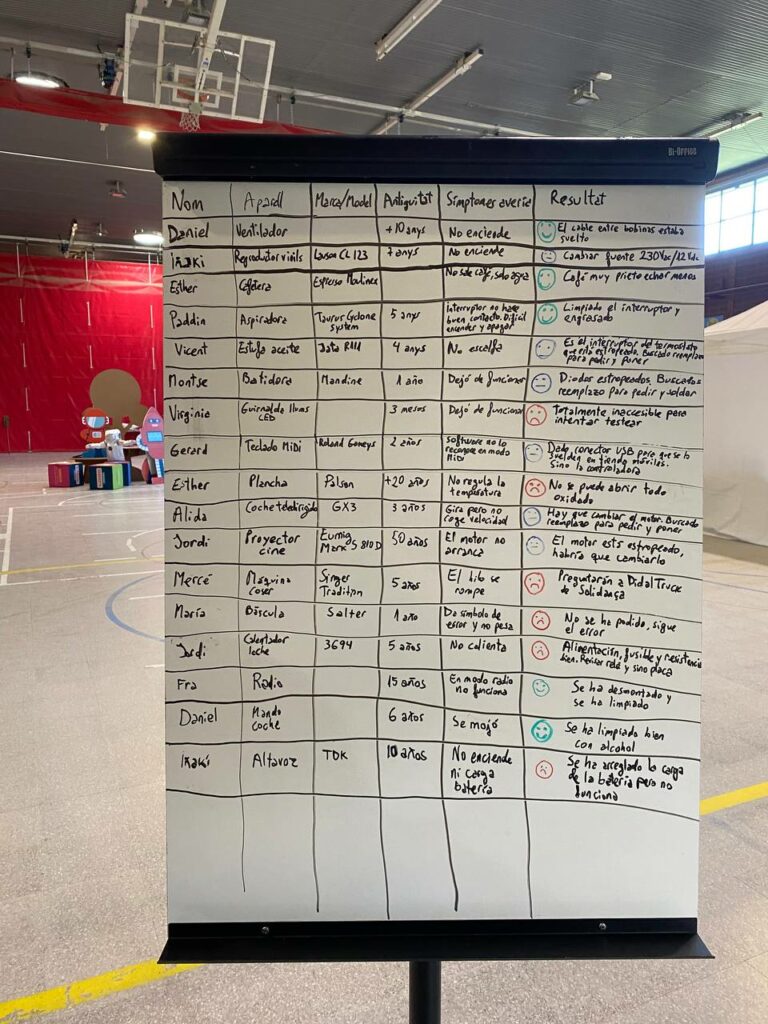 Bi-Office
Nom Aparell Marca/Model Antiguitat Símptomes averia Resultat
Daniel Ventilador +10 anys No enciende El cable entre bobinas estaba
suelto
Iñaki Reproductor vinils Lauson CL 123 7 anys No enciende Cambiar fuente 230Vac/12Vdc
Esther Cafetera Espresso Moulinex No sale café, solo agua Café muy prieto echar menos
Paddin Aspiradora Taurus Cyclone
system 5 anys Interruptor no hace
buen contacto. Difícil
encender y apagar Limpiado el interruptor y
engrasado
Vicent Estufa aceite 4 anys No escalfa Es el interruptor del termostato
que está estropeado. Buscado reemplazo
para pedir y poner
Montse Batidora Mandine 1 año Dejó de funcionar Diodos estropeados. Buscados
reemplazo para pedir y soldar
Virginia Guirnalda llums
LED 3 mesos Dejó de funcionar Totalmente inaccesible para
intentar testear
Gerard Teclado MiDi Roland 2 años Software no lo
reconoce en modo
MiDi conector USB para que se lo
suelden en tienda móviles.
Sino la controladora
Esther Plancha Palson +20 años No regula la
temperatura No se puede abrir todo
oxidado
Alida Coche teledirigido GX3 3 años Gira pero no
coge velocidad Hay que cambiar el motor. Buscado
reemplazo para pedir y poner
Jordi Proyector
cine Eumig
Mark S 810D 50 años El motor no
arranca El motor está estropeado,
habría que cambiarlo
Mercé Máquina
coser Singer
Tradition 5 años El hilo se
rompe Preguntarán a Didal Truck
de Solidança
María Báscula Salter 1 año Da símbolo de
error y no pesa No se ha podido, sigue
el error
Jordi Calentador
leche 3694 5 años No calienta Alimentación, fusible y resistencia
bien. Revisar relé y sino placa
Fra Radio 15 años En modo radio
no funciona Se ha desmontado y
se ha limpiado
Daniel Mando
coche 6 años Se mojó Se ha limpiado bien
con alcohol
Iñaki Altavoz TDK 10 años No enciende
ni carga
batería Se ha arreglado la carga
de la batería pero no
funciona